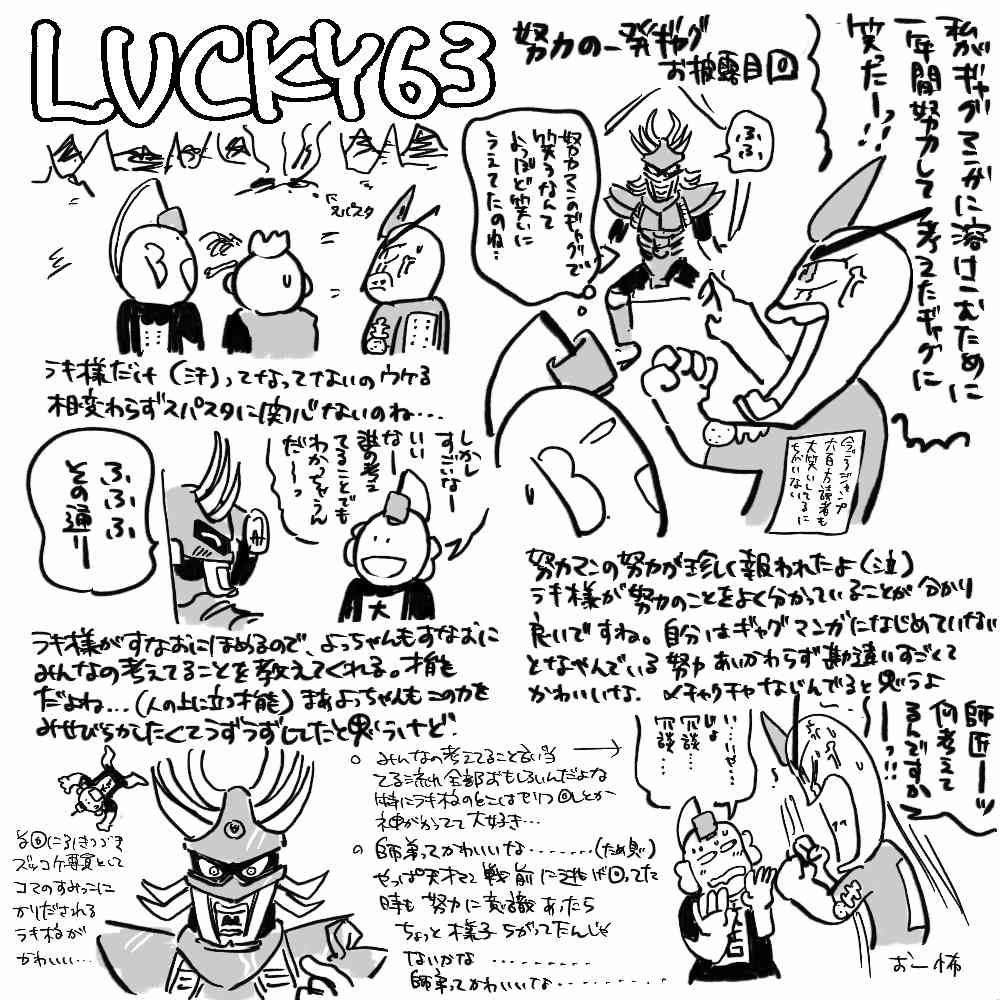 LUCKY63
努力の一発ギャグ
お披露目回
私がギャグマンガに溶けこむために
一年間努力して考えたギャグに
笑った―っ!!
ふふ
努力マンのギャグで
笑うなんて
よっぽど笑いに
うえてたのね…
スパスタ
ラキ様だけ(汗)ってなってないのウケる
相変わらずスパスタに関心ないのね…
しかし
すごいなー
いいなー
誰の考え
てることでも
わかっちゃうん
だ――っ
大
ふふふ
その通り
今ごろジャンプ
六百万読者も
大笑いしてるに
ちがいない
努力マンの努力が珍しく報われたよ(泣)
ラキ様が努力のことをよく分かっていることが分かり
良いですね。自分はギャグマンガになじめていない
となやんでいる努力 あいかわらず勘違いすごくて
かわいいな. メチャクチャなじんでると思うよ
ラキ様がすなおにほめるので、よっちゃんもすなおに
みんなの考えてることを教えてくれる。才能
だよね…(人の上に立つ才能)まあよっちゃんもこの力を
みせびらかしたくてうずうずしてたと思うけど
師匠―ッ
何考えて
るんですか
――っ!!
いやじょ
冗談…
冗談…
みんなの考えてること言い当
てる流れ全部おもしろいんだよな
神がかってて大好き…
師弟ってかわいいな……(ため息)
時も努力に意識あったら
ちょっと様子ちがってたんじゃ
ないかな……
師弟ってかわいいな……
ズッコケ専員として
コマのすみっこに
かりだされる
ラキ様が
かわいい…
おー怖